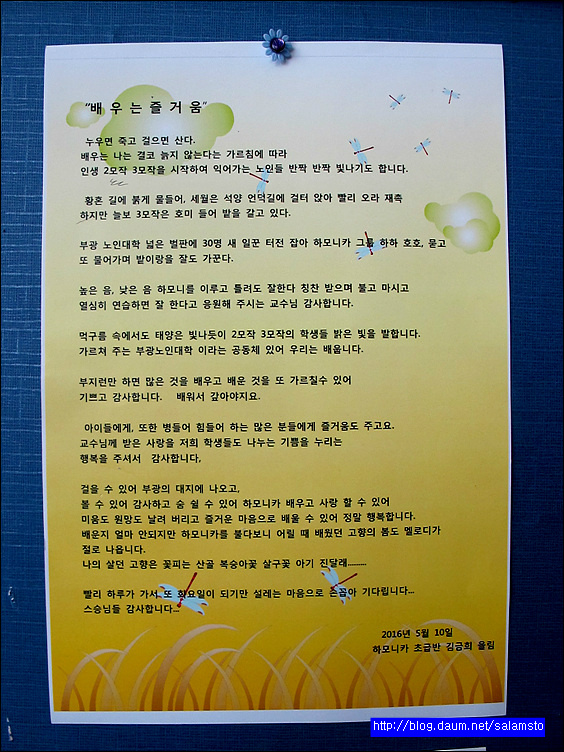 "배 우 는 즐 거 움"
누우면 죽고 걸으면 산다.
배우는 나는 결코 늙지 않는다는 가르침에 따라
인생 2모작 3모작을 시작하여 익어가는 노인들 반짝 반짝 빛나기도 합니다.
황혼 길에 붉게 물들어, 세월은 석양 언덕길에 걸터 앉아 빨리 오라 재촉
하지만 늘보 3모작은 호미 들어 밭을 갈고 있다.
부광 노인대학 넓은 벌판에 30명 새 일꾼 터전 잡아 하모니카 그룹 하하 호호, 묻고
또 물어가며 밭이랑을 잘도 가꾼다.
높은 음, 낮은 음 하모니를 이루고 틀려도 잘한다 칭찬 받으며 불고 마시고
열심히 연습하면 잘 한다고 응원해 주시는 교수님 감사합니다.
먹구름 속에서도 태양은 빛나듯이 2모작 3모작의 학생들 밝은 빛을 발합니다.
가르쳐 주는 부광노인대학 이라는 공동체 있어 우리는 배웁니다.
부지런만 하면 많은 것을 배우고 배운 것을 또 가르칠수 있어
기쁘고 감사합니다. 배워서 갚아야지요.
아이들에게, 또한 병들어 힘들어 하는 많은 분들에게 즐거움도 주고요.
교수님께 받은 사랑을 저희 학생들도 나누는 기쁨을 누리는
행복을 주셔서 감사합니다,
걸을 수 있어 부광의 대지에 나오고,
볼 수 있어 감사하고 숨 쉴 수 있어 하모니카 배우고 사랑 할 수 있어
미움도 원망도 날려 버리고 즐거운 마음으로 배울 수 있어 정말 행복합니다.
배운지 얼마 안되지만 하모니카를 불다보니 어릴 때 배웠던 고향의 봄도 멜로디가
절로 나옵니다.
나의 살던 고향은 꽃피는 산골 복숭아꽃 살구꽃 아기 진달래.........
빨리 하루가 가서 또 화요일이 되기만 설레는 마음으로 손꼽아 기다립니다...
스승님들 감사합니다...
2016년 5월 10일
하모니카 초급반 김금희 올림
http://blog.daum.net/salamsto